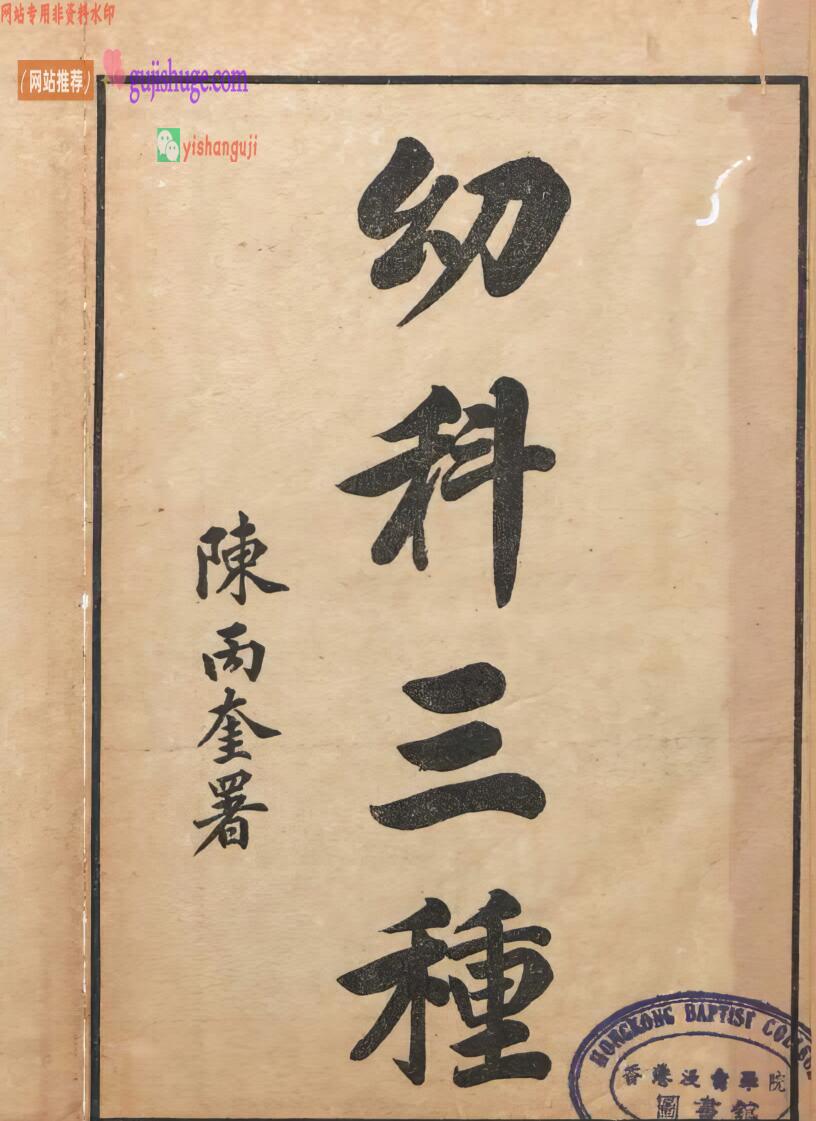 网站专用非资料水印
(网站推荐)
gujishuge.com
yishanguji
幼科三種
陳丙奎署
HONGKONG BAPTIST COLLEGE
香港浸會學院
圖書館